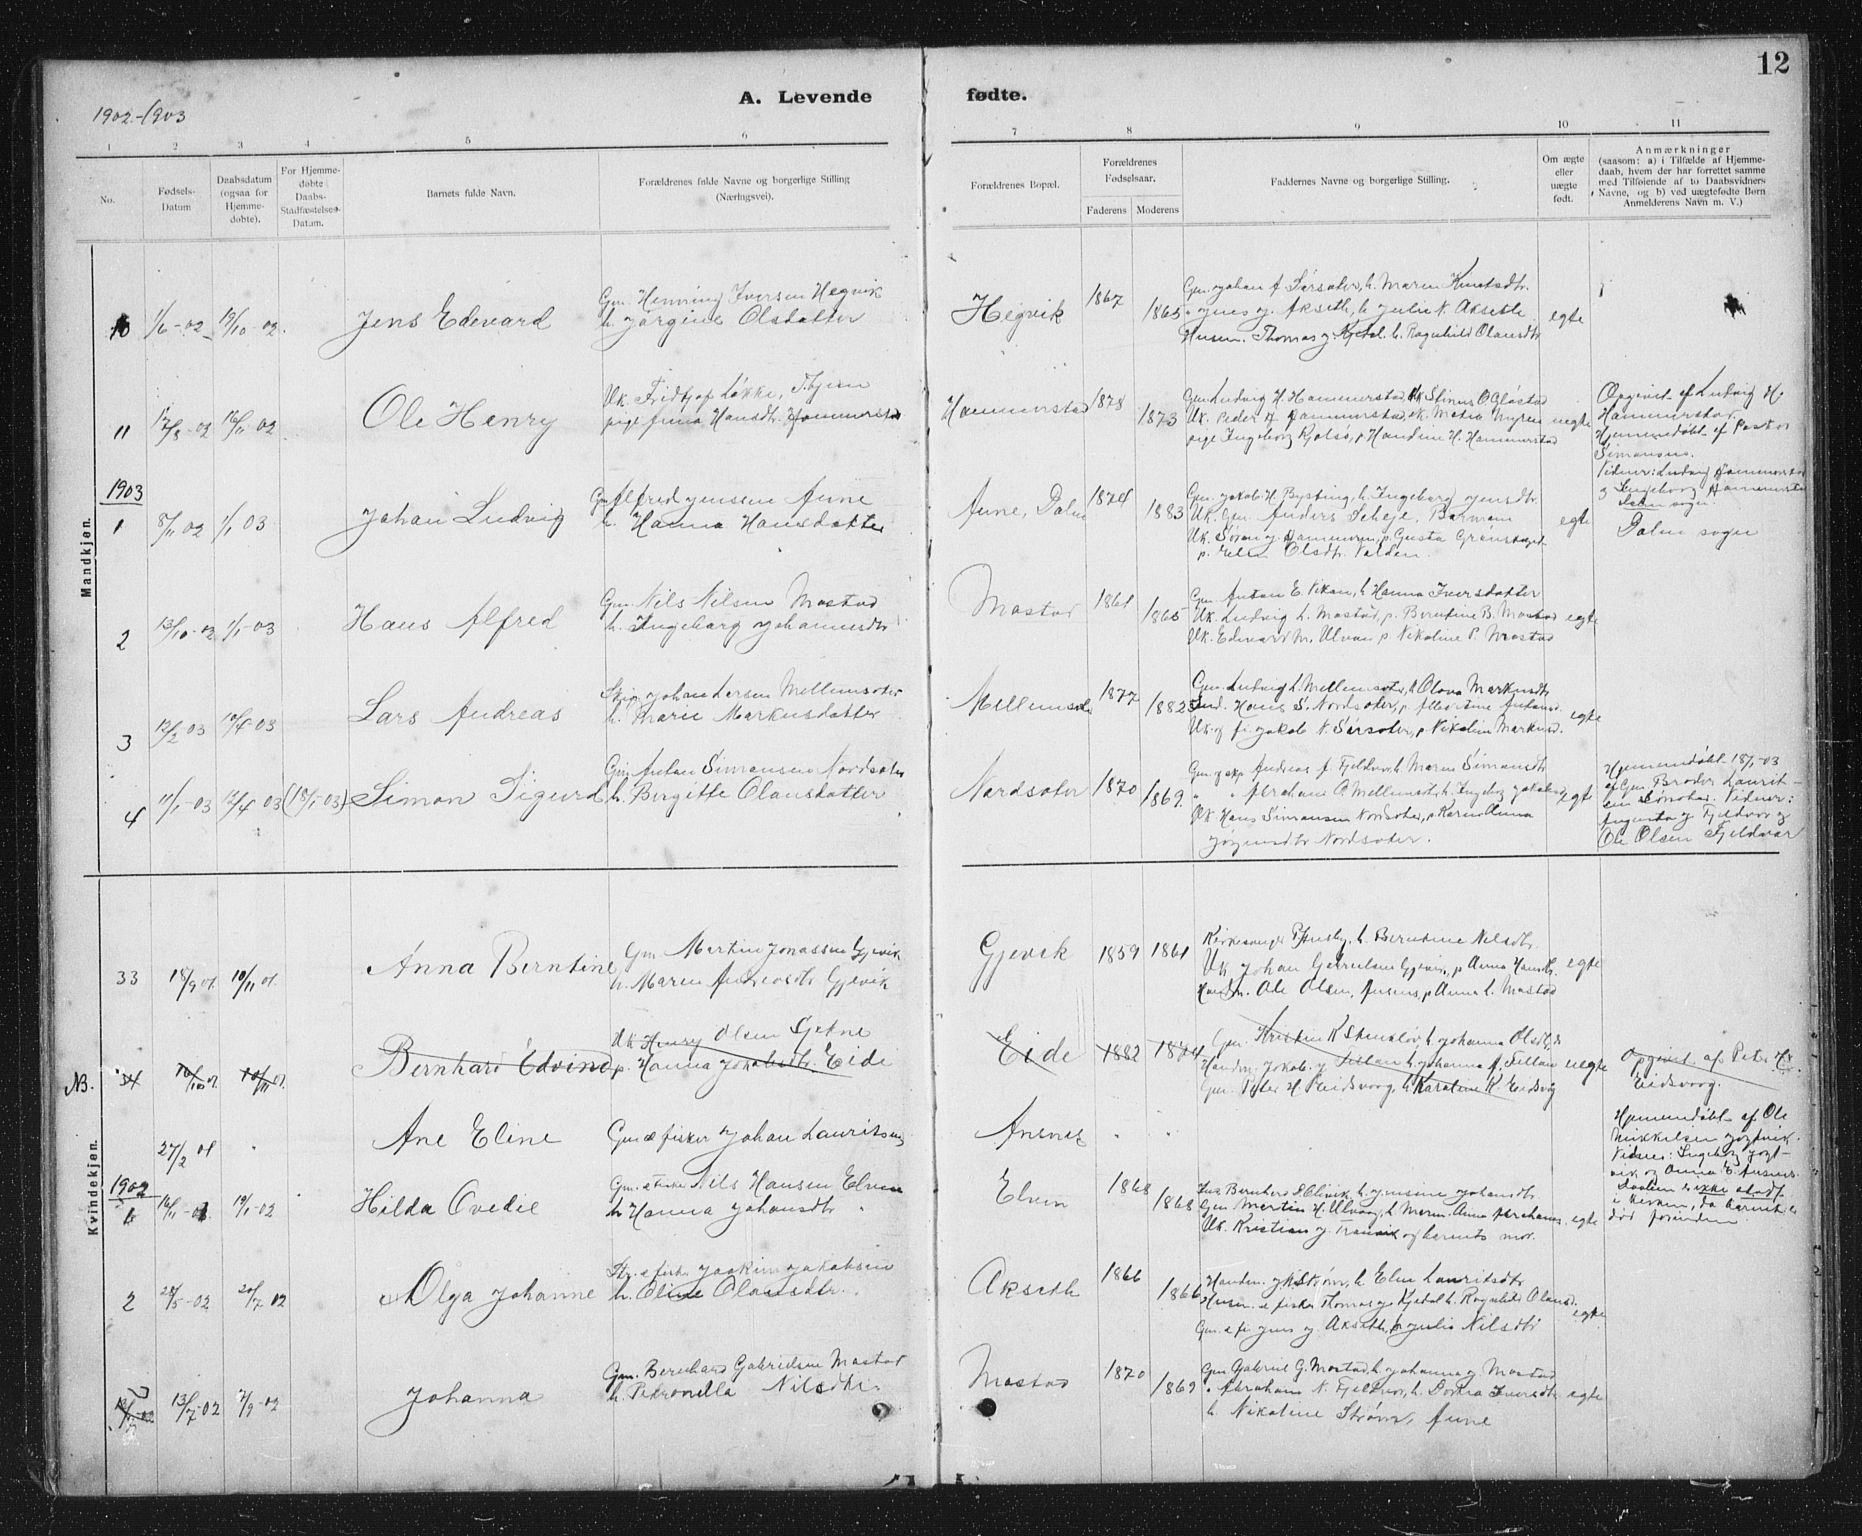 12
A. Levende fødte.
1902-1903
1 2 3 4 5 6 7 8 9 10 11
No.
Fødsels-
Datum
Daabsdatum
(ogsaa for
Hjemme-
døbte).
For Hjemme-
døbte
Daabs-
Stadfæstelses-
Datum.
Barnets fulde Navn.
Forældrenes fulde Navne og borgerlige Stilling
(Næringsvei).
Forældrenes Bopæl.
Forældrenes
Fødselsaar.
Faderens Moderens
Faddernes Navne og borgerlige Stilling.
Om ægte
eller
uægte
født.
Anmærkninger
(saasom: a) i Tilfælde af Hjemme-
daab, hvem der har forrettet samme
med Tilføiende af to Daabsvidners
Navne, og b) ved uægtefødte Børn
Anmelderens Navn m. V.)
Mandkjøn.
10 1/6-02 19/10-02 Jens Edevard
Gm. Henning Iversen Hegvik
h. Jørgine Olsdatter
Hegvik 1867 1865
Gm. Johan A Sørsæter, h. Maren Knutsdtr.
" Jens J. Akseth, h. Julie N. Akseth
Husm. Thomas J. Kjetil h. Ragnhild Olausdtr
egte
11 17/8-02 16/11-02 Ole Henry
Uk. Fridtjof Løkke,
pige Anna Hansdtr. Hammerstad
Hammerstad 1878 1873
Gm. Ludvig H. Hammerstad, Uk Stinus O Gløstad
Uk. Peder H Hammerstad,
pige Ingeborg, p Handine H. Hammerstad
uegte
Opgivet af Ludvig H.
Hammerstad.
Hjemmedøbt af Pastor
Simonsen.
Vidner: Ludvig Hammerstad
og Ingeborg Hammerstad
1903
1 8/11 02 1/1 03 Johan Ludvig
Gm Alfred Jensen Aune
h. Hanna Hansdatter
Aune, Dalen 1874 1883
Gm. Jakob H. Bysting, h. Ingeborg Jensdtr.
Uk. Gm. Anders
Uk. Søren J. Hammeren, p. Gusta
p. Elen Olsdtr. Valden.
egte
sogn
2 13/10-02 1/1-03 Hans Alfred
Gm. Nils Nilsen Mostad
h. Ingeborg Johannesdtr
Mastad 1861 1865
Gm. Anton E. Vikan, h Hanna Iversdatter
Uk. Ludvig L. Mastad, p. Berntine B. Mastad
Uk. Edevard M. Ulvan p Nikoline P. Mostad
egte
3 12/2 03 4-03 Lars Andreas
Johan Larsen Mellemsæter
h. Marie Markusdatter
Mellemsæter 1877 1882
Gm. Ludvig L. Mellemsæter, h Olava Markusdtr
Hans S. Nordsæter, p Albertine
Jakob N. Sørsæter, p Nikoline Markusd.
egte
4 11/1-03 12/4 03 (18/1-03) Simon Sigurd
Gm. Anton Simonsen Nordsæter
h. Bergitte Olausdatter
Nordsæter 1870 1869
Andreas A Fjeldvær, h. Maren Simonsdtr
" " Abraham O Mellemsæter, h. Ingeborg Jakobsd
Uk Hans Simonsen Nordsæter, p Karen Anna
Jørgensdtr Nordsæter.
egte
Hjemmedøbt 18/1-03
af Gm. Broder Laurit-
sen. Vidner:
Augusta J Fjeldvær og
Ole Olsen Fjeldvær
Kvindekjøn.
33 18/9 01. 10/11 01. Anna Berntine
Gm. Martin Jonassen Gjevik
h. Maren Andreasdtr Gjevik
Gjevik 1859 1861
Kirkesanger P Husby, h. Berntine Nilsdtr.
Uk Johan Gabrielsen Gjevik, p Anna Hansdtr.
Handm. Ole Olsen, Ansnes, p Anna L. Mastad
egte
NB. 34 10/10 01. 10/11 01. Bernhard Edvind
Uk Henry Olsen Gjetne
p. Hanna Jakobsdtr. Eide
Eide 1882 1874
Gm. Kristen K Stensløv, h Johanna Olsdtr
Handm. Jakob J Fillan h Johanna A Fillan
Gm. Peter H Eidsvaag, h Karoline K. Eidsvåg
uegte
Opgivet af Peter H.
Eidsvoog.
27/2 01 " Ane Eline
Gm. & fisker Johan Lauritsen
Ansnes " "
Hjemmedøbt af Ole
Mikkelsen
Vidner: Ingeborg
og Anna E. Ansnes.
Daaben er ikke stadf.
i kirken, da barnet er
død forinden.
1902
1 16/11-01 19/1-02 Hilda Ovedie
Gm. & fisker Nils Hansen Elven
h Hanna Johansdtr "
Elven 1868 1868
Bernhard, h. Jensine Johansdtr.
Gm. Martin H. Ulvan, h Maren Anna Abrahams.
Uk. Kristian J. Tranvik og barnets mor.
egte
2 28/5-02 20/7 02 Olga Johanne
Str. & fisker Joakim Jakobsen
h. Oline Olausdtr.
Akseth 1866 1866
Handm. J K Strøm, h Elen Lauritsdtr
Husm. & fisker Thomas J Kjetil h. Ragnhild Olausd.
Gm. & fi Jens J. Akseth, h Julie Nilsdtr
egte
3 13/7-02 7/9-02 Johanna
Gm. Bernhard Gabrielsen Mastad
h. Petronella Nilsdtr.
Mastad 1870 1869
Gm Gabriel G. Mostad, h Johanna J Mostad
" Abraham N. Fjeldvær, h. Dortea Iversdtr
h. Nikoline Strøm, Aune
egte